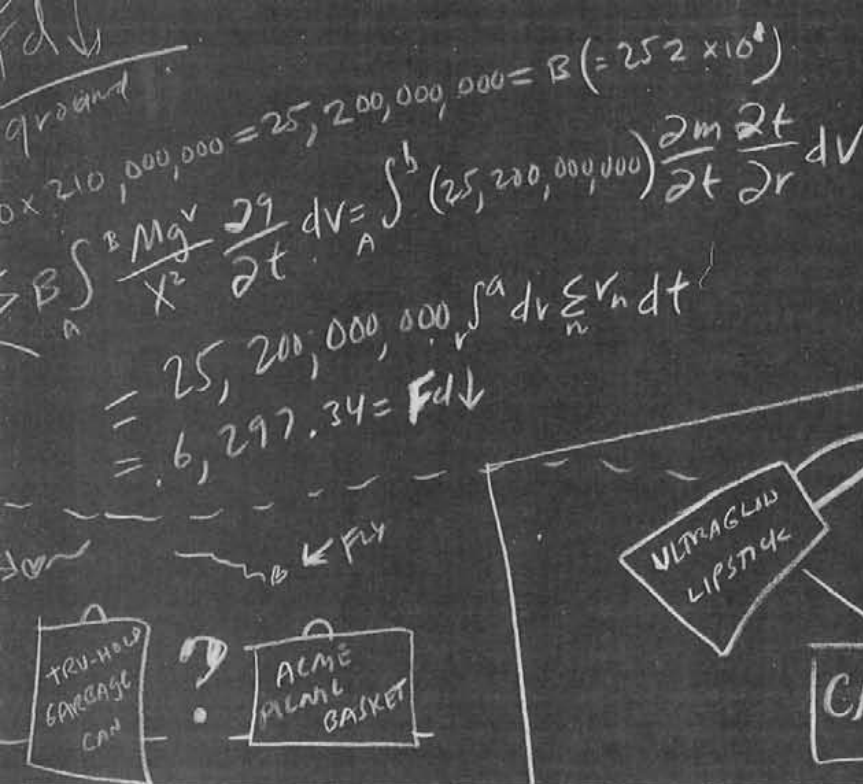 Fd↓
ground
0 x 210,000,000 = 25,200,000,000 = B (= 252 x 10⁸)
B ∫_A^B Mg^v/x² ∂g/∂t dv = ∫_A^b (25,200,000,000) ∂m/∂t ∂t/∂r dV
= 25,200,000,000 ∫_r^a dr Σ_n r_n dt
= 6,297.34 = Fd↓
← FLY
TRU-HOLD
GARBAGE
CAN
?
ACME
PICNIC
BASKET
ULTRAGLOW
LIPSTICK